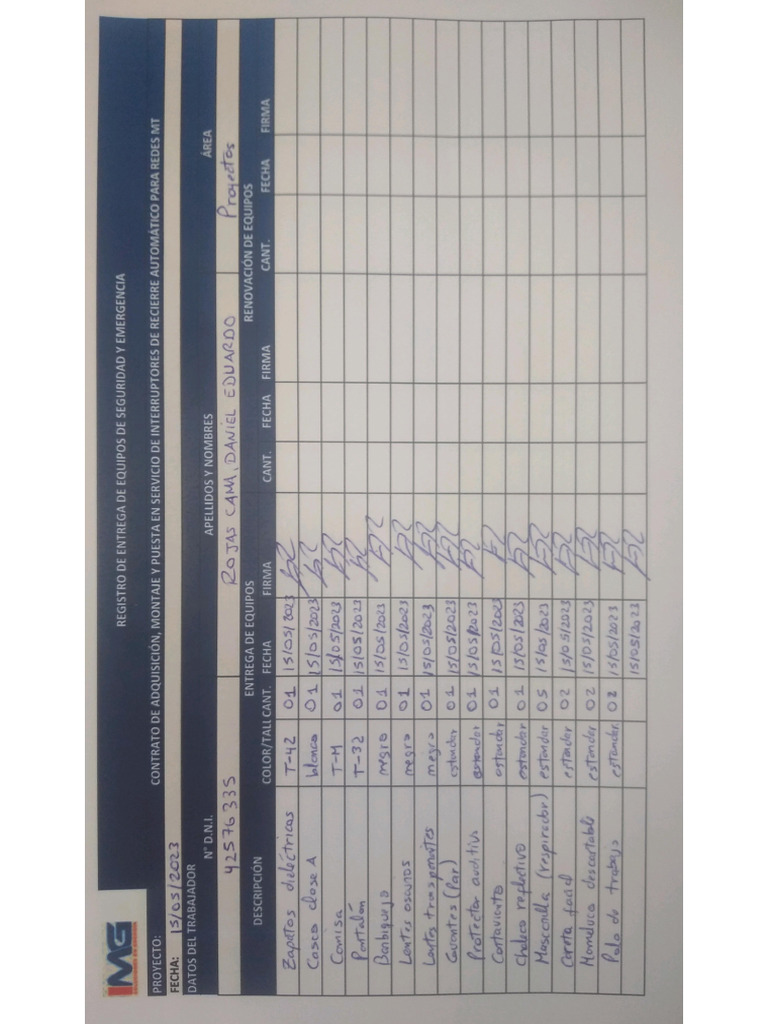 IMG
REGISTRO DE ENTREGA DE EQUIPOS DE SEGURIDAD Y EMERGENCIA
PROYECTO: CONTRATO DE ADQUISICIÓN, MONTAJE Y PUESTA EN SERVICIO DE INTERRUPTORES DE RECIERRE AUTOMÁTICO PARA REDES MT
FECHA: 15/05/2023
DATOS DEL TRABAJADOR
N° D.N.I. APELLIDOS Y NOMBRES ÁREA
42576335 ROJAS CAMA, DANIEL EDUARDO Proyectos
ENTREGA DE EQUIPOS RENOVACIÓN DE EQUIPOS
DESCRIPCIÓN COLOR/TALL CANT. FECHA FIRMA CANT. FECHA FIRMA CANT. FECHA FIRMA
Zapatos dieléctricos T-42 01 15/05/2023
Casco clase A blanco 01 15/05/2023
Camisa T-M 01 15/05/2023
Pantalón T-32 01 15/05/2023
Barbiquejo negro 01 15/05/2023
Lentes oscuros negro 01 15/05/2023
Lentes transparentes negro 01 15/05/2023
Guantes (Par) estandar 01 15/05/2023
Protector auditivo estandar 01 15/05/2023
Cortaviento estandar 01 15/05/2023
Chaleco reflectivo estandar 01 15/05/2023
Mascarilla (respirador) estandar 05 15/05/2023
Careta facial estandar 02 15/05/2023
Mameluco descartable estandar 02 15/05/2023
Polo de trabajo estandar 02 15/05/2023
15/05/2023